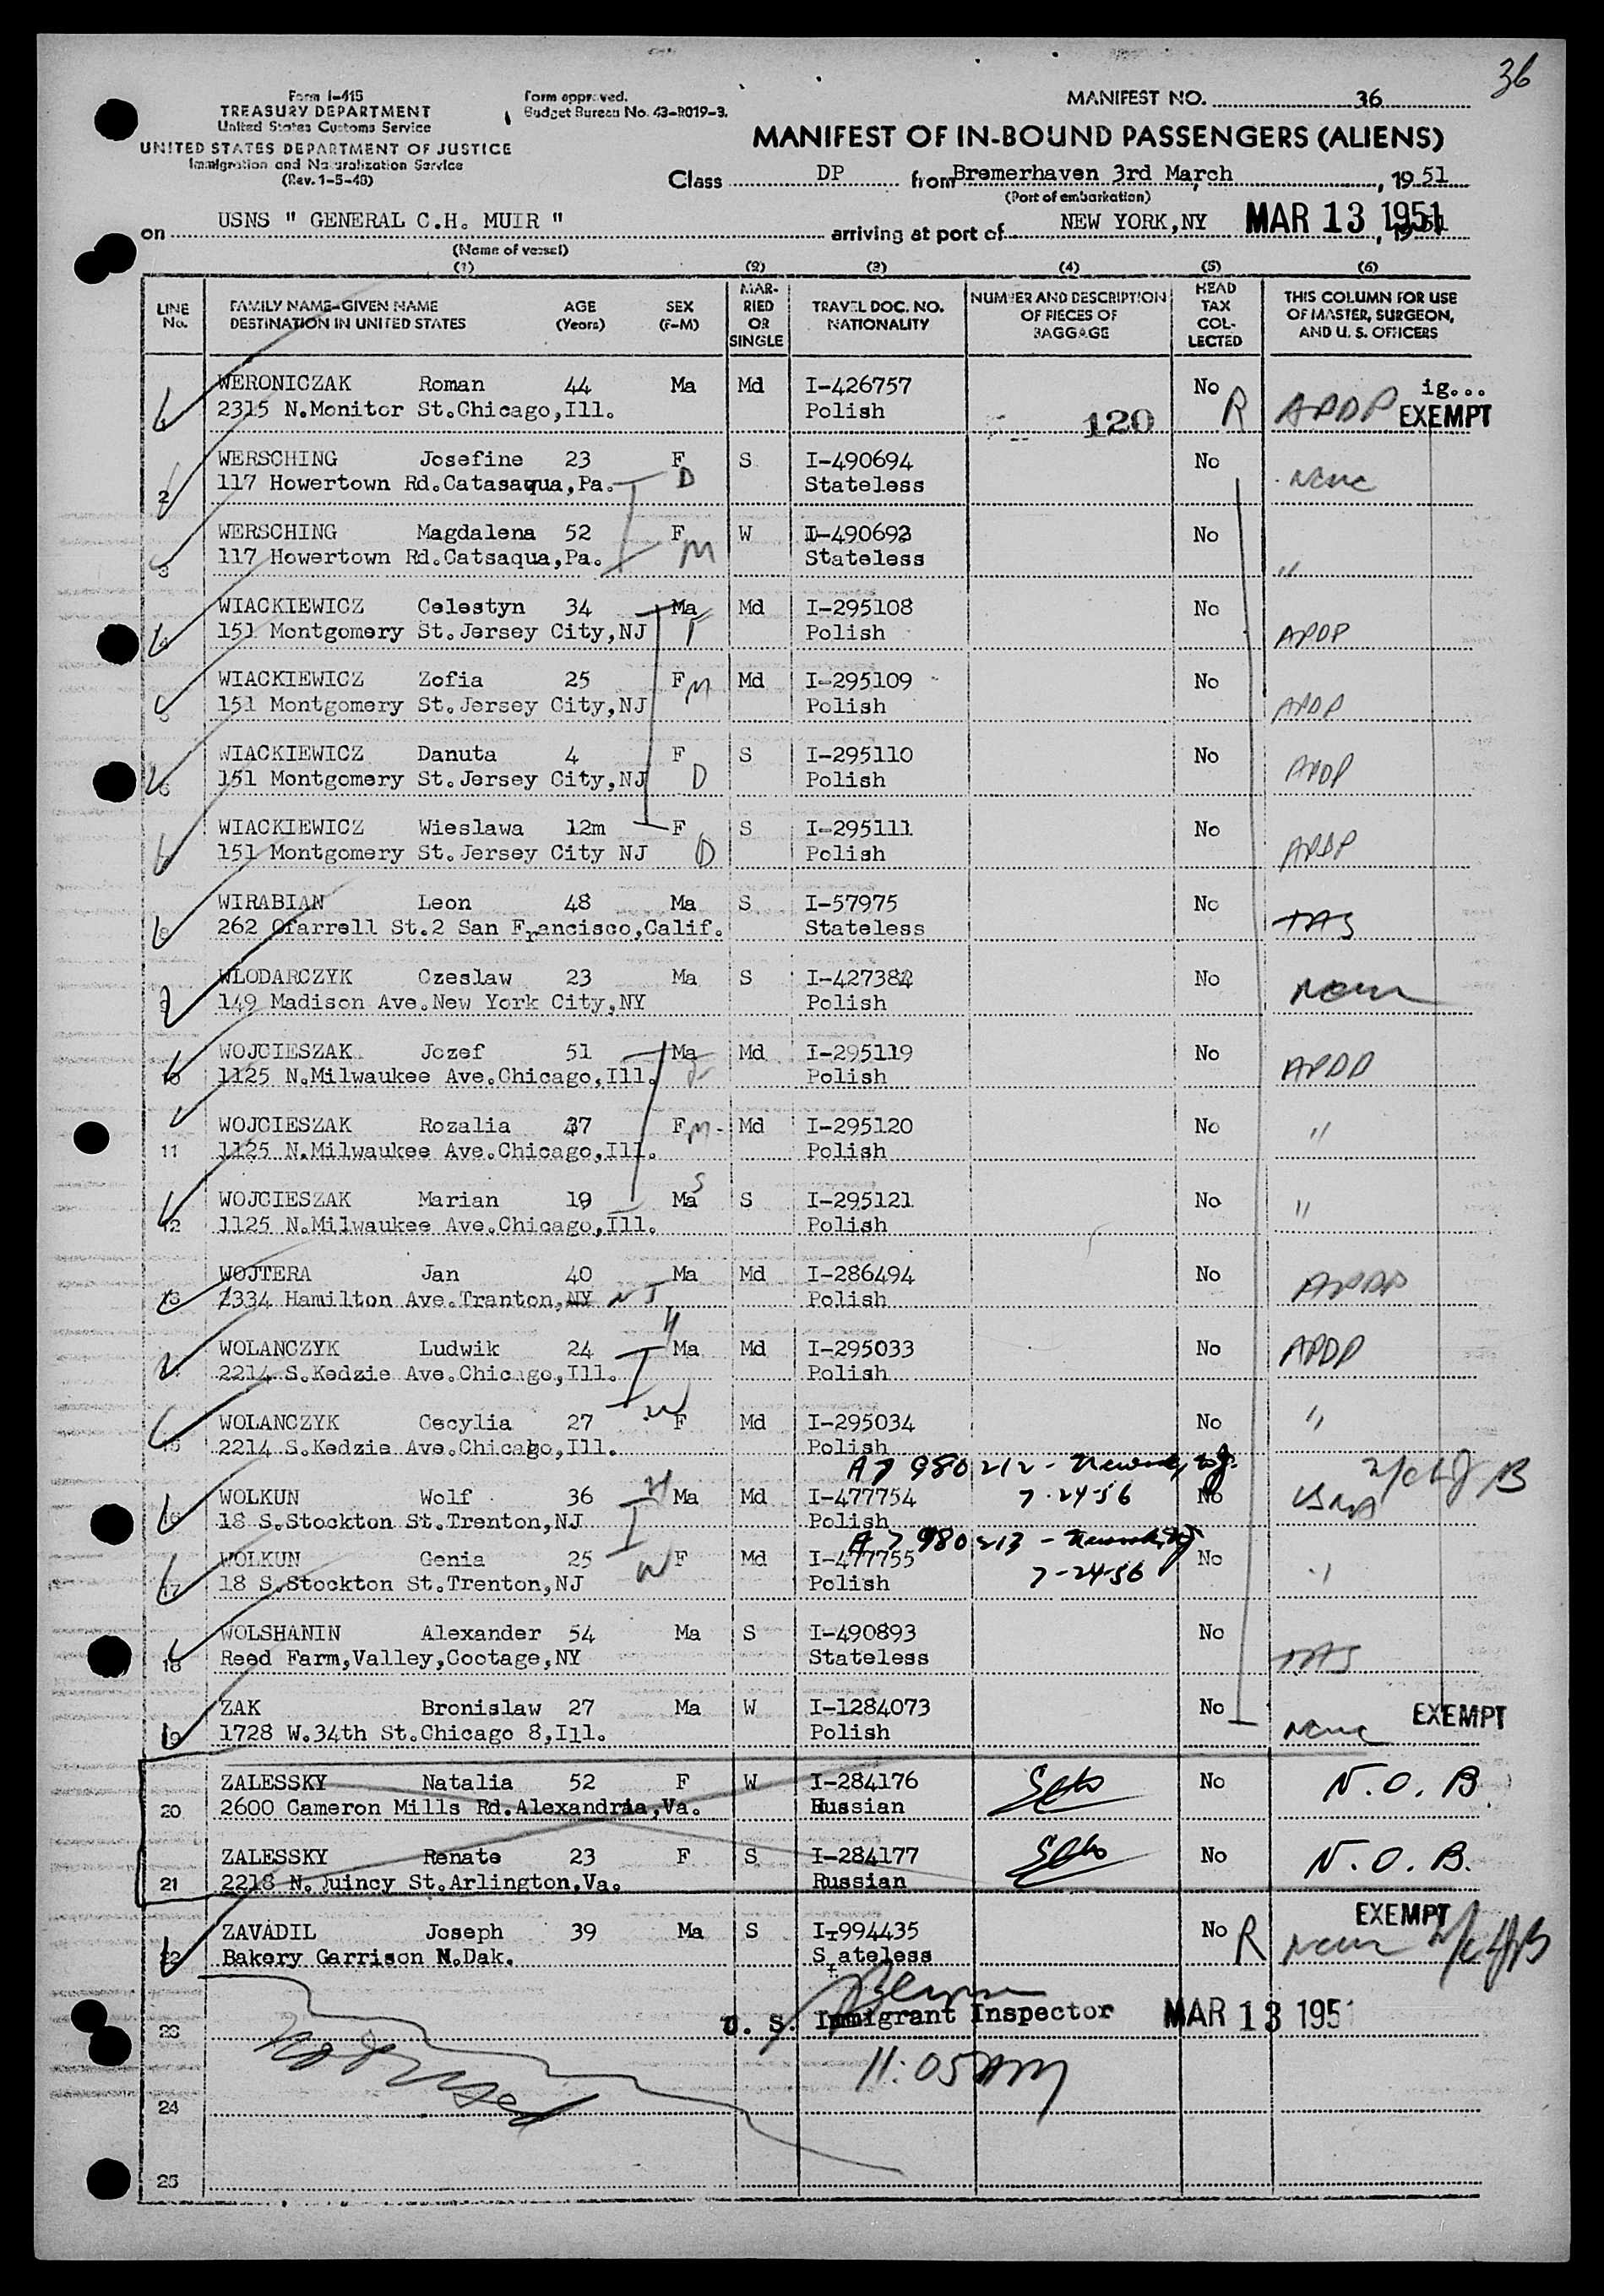 36
Form I-415
TREASURY DEPARTMENT
United States Customs Service
UNITED STATES DEPARTMENT OF JUSTICE
Immigration and Naturalization Service
(Rev. 1-5-48)
Form approved.
Budget Bureau No. 43-R019-3.
MANIFEST NO. 36
MANIFEST OF IN-BOUND PASSENGERS (ALIENS)
Class DP from Bremerhaven 3rd March, 1951
(Port of embarkation)
on USNS " GENERAL C.H. MUIR " arriving at port of NEW YORK,NY MAR 13 1951, 1951
(Name of vessel)
(1) (2) (3) (4) (5) (6)
LINE No.
FAMILY NAME-GIVEN NAME AGE SEX
DESTINATION IN UNITED STATES (Years) (F-M)
MARRIED OR SINGLE
TRAVEL DOC. NO.
NATIONALITY
NUMBER AND DESCRIPTION OF PIECES OF BAGGAGE
HEAD TAX COLLECTED
THIS COLUMN FOR USE OF MASTER, SURGEON, AND U. S. OFFICERS
WERONICZAK Roman 44 Ma Md I-426757 No R APDP ig...
2315 N.Monitor St.Chicago,Ill. Polish 120 EXEMPT
2 WERSCHING Josefine 23 F D S I-490694 No None
117 Howertown Rd.Catasaqua,Pa. Stateless
3 WERSCHING Magdalena 52 F M W I-490693 No "
117 Howertown Rd.Catsaqua,Pa. Stateless
4 WIACKIEWICZ Celestyn 34 Ma F Md I-295108 No APDP
151 Montgomery St.Jersey City,NJ Polish
5 WIACKIEWICZ Zofia 25 F M Md I-295109 No APDP
151 Montgomery St.Jersey City,NJ Polish
6 WIACKIEWICZ Danuta 4 F D S I-295110 No APDP
151 Montgomery St.Jersey City,NJ Polish
WIACKIEWICZ Wieslawa 12m F D S I-295111 No APDP
151 Montgomery St.Jersey City NJ Polish
8 WIRABIAN Leon 48 Ma S I-57975 No TAS
262 Ofarrell St.2 San Francisco,Calif. Stateless
9 WLODARCZYK Czeslaw 23 Ma S I-427382 No None
149 Madison Ave.New York City,NY Polish
10 WOJCIESZAK Jozef 51 Ma F Md I-295119 No APDP
1125 N.Milwaukee Ave.Chicago,Ill. Polish
11 WOJCIESZAK Rozalia 37 F M Md I-295120 No "
1125 N.Milwaukee Ave.Chicago,Ill. Polish
12 WOJCIESZAK Marian 19 Ma S S I-295121 No "
1125 N.Milwaukee Ave.Chicago,Ill. Polish
13 WOJTERA Jan 40 Ma Md I-286494 No APDP
1334 Hamilton Ave.Tranton,NY NJ Polish
WOLANCZYK Ludwik 24 H Ma Md I-295033 No APDP
2214 S.Kedzie Ave.Chicago,Ill. Polish
15 WOLANCZYK Cecylia 27 W F Md I-295034 No "
2214 S.Kedzie Ave.Chicago,Ill. Polish
A7 980 212 - Newark, NJ.
16 WOLKUN Wolf 36 H Ma Md I-477754 7-24-56 No USNA
18 S.Stockton St.Trenton,NJ Polish
A7 980 213 - Newark NJ
17 WOLKUN Genia 25 W F Md I-477755 No "
18 S.Stockton St.Trenton,NJ Polish 7-24-56
18 WOLSHANIN Alexander 54 Ma S I-490893 No TAS
Reed Farm,Valley,Cootage,NY Stateless
19 ZAK Bronislaw 27 Ma W I-1284073 No None EXEMPT
1728 W.34th St.Chicago 8,Ill. Polish
20 ZALESSKY Natalia 52 F W I-284176 No N.O.B.
2600 Cameron Mills Rd.Alexandria,Va. Russian
21 ZALESSKY Renate 23 F S I-284177 No N.O.B.
2218 N.Quincy St.Arlington,Va. Russian
EXEMPT
22 ZAVADIL Joseph 39 Ma S I-994435 No R None
Bakery Garrison N.Dak. Stateless
23 U. S. Immigrant Inspector MAR 13 1951
11:05 AM
24
25